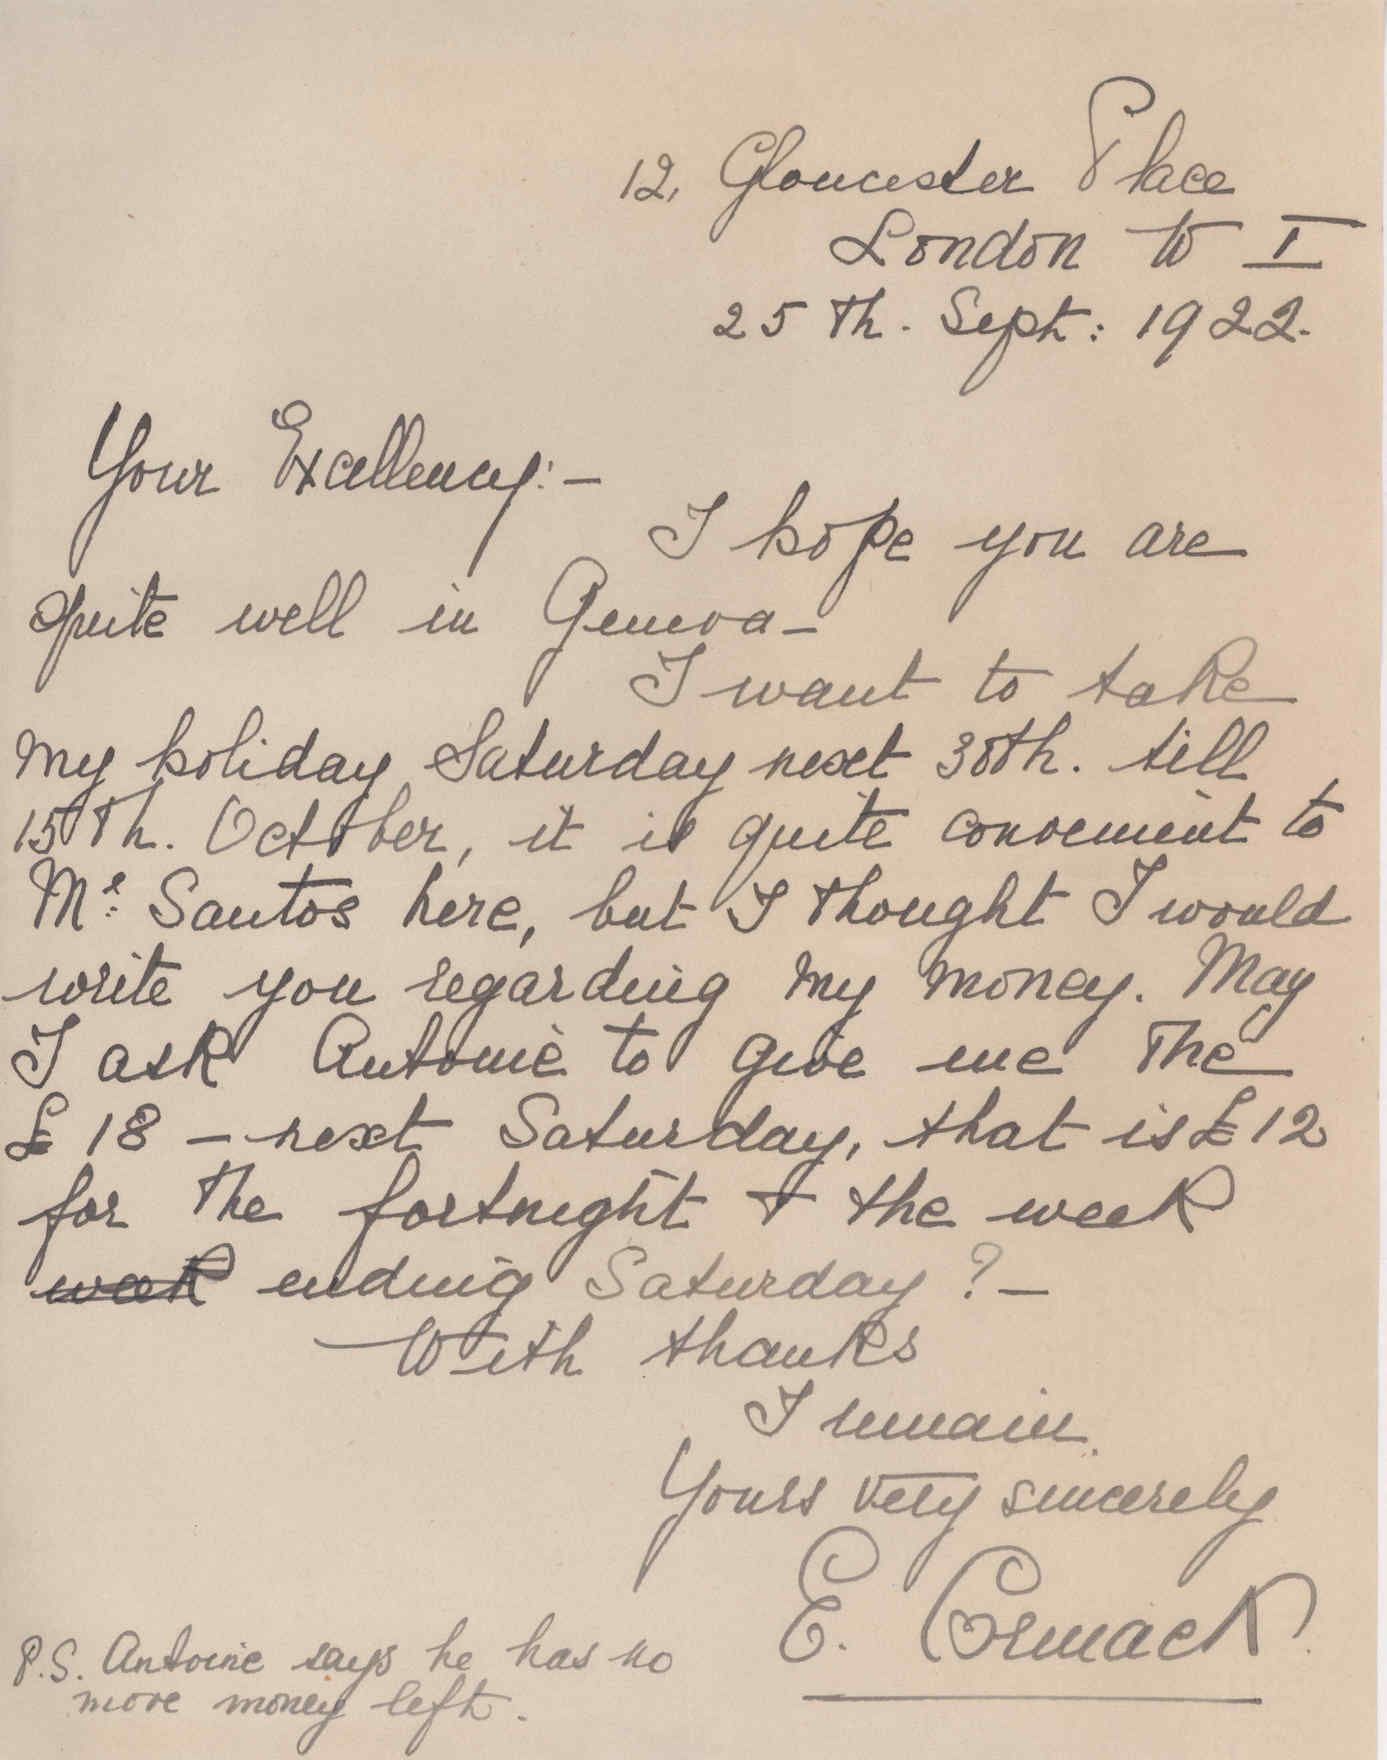 12, Gloucester Place
London W I
25th. Sept: 1922.
Your Excellency:-
I hope you are
quite well in Geneva-
I want to take
my holiday Saturday next 30th. till
15th. October, it is quite convenient to
Mr: Santos here, but I thought I would
write you regarding my money. May
I ask Antoine to give me the
£18 - next Saturday, that is £12
for the fortnight + the week
week ending Saturday?-
With thanks
I remain
Yours very sincerely
E. Cormack
P.S. Antoine says he has no
more money left.